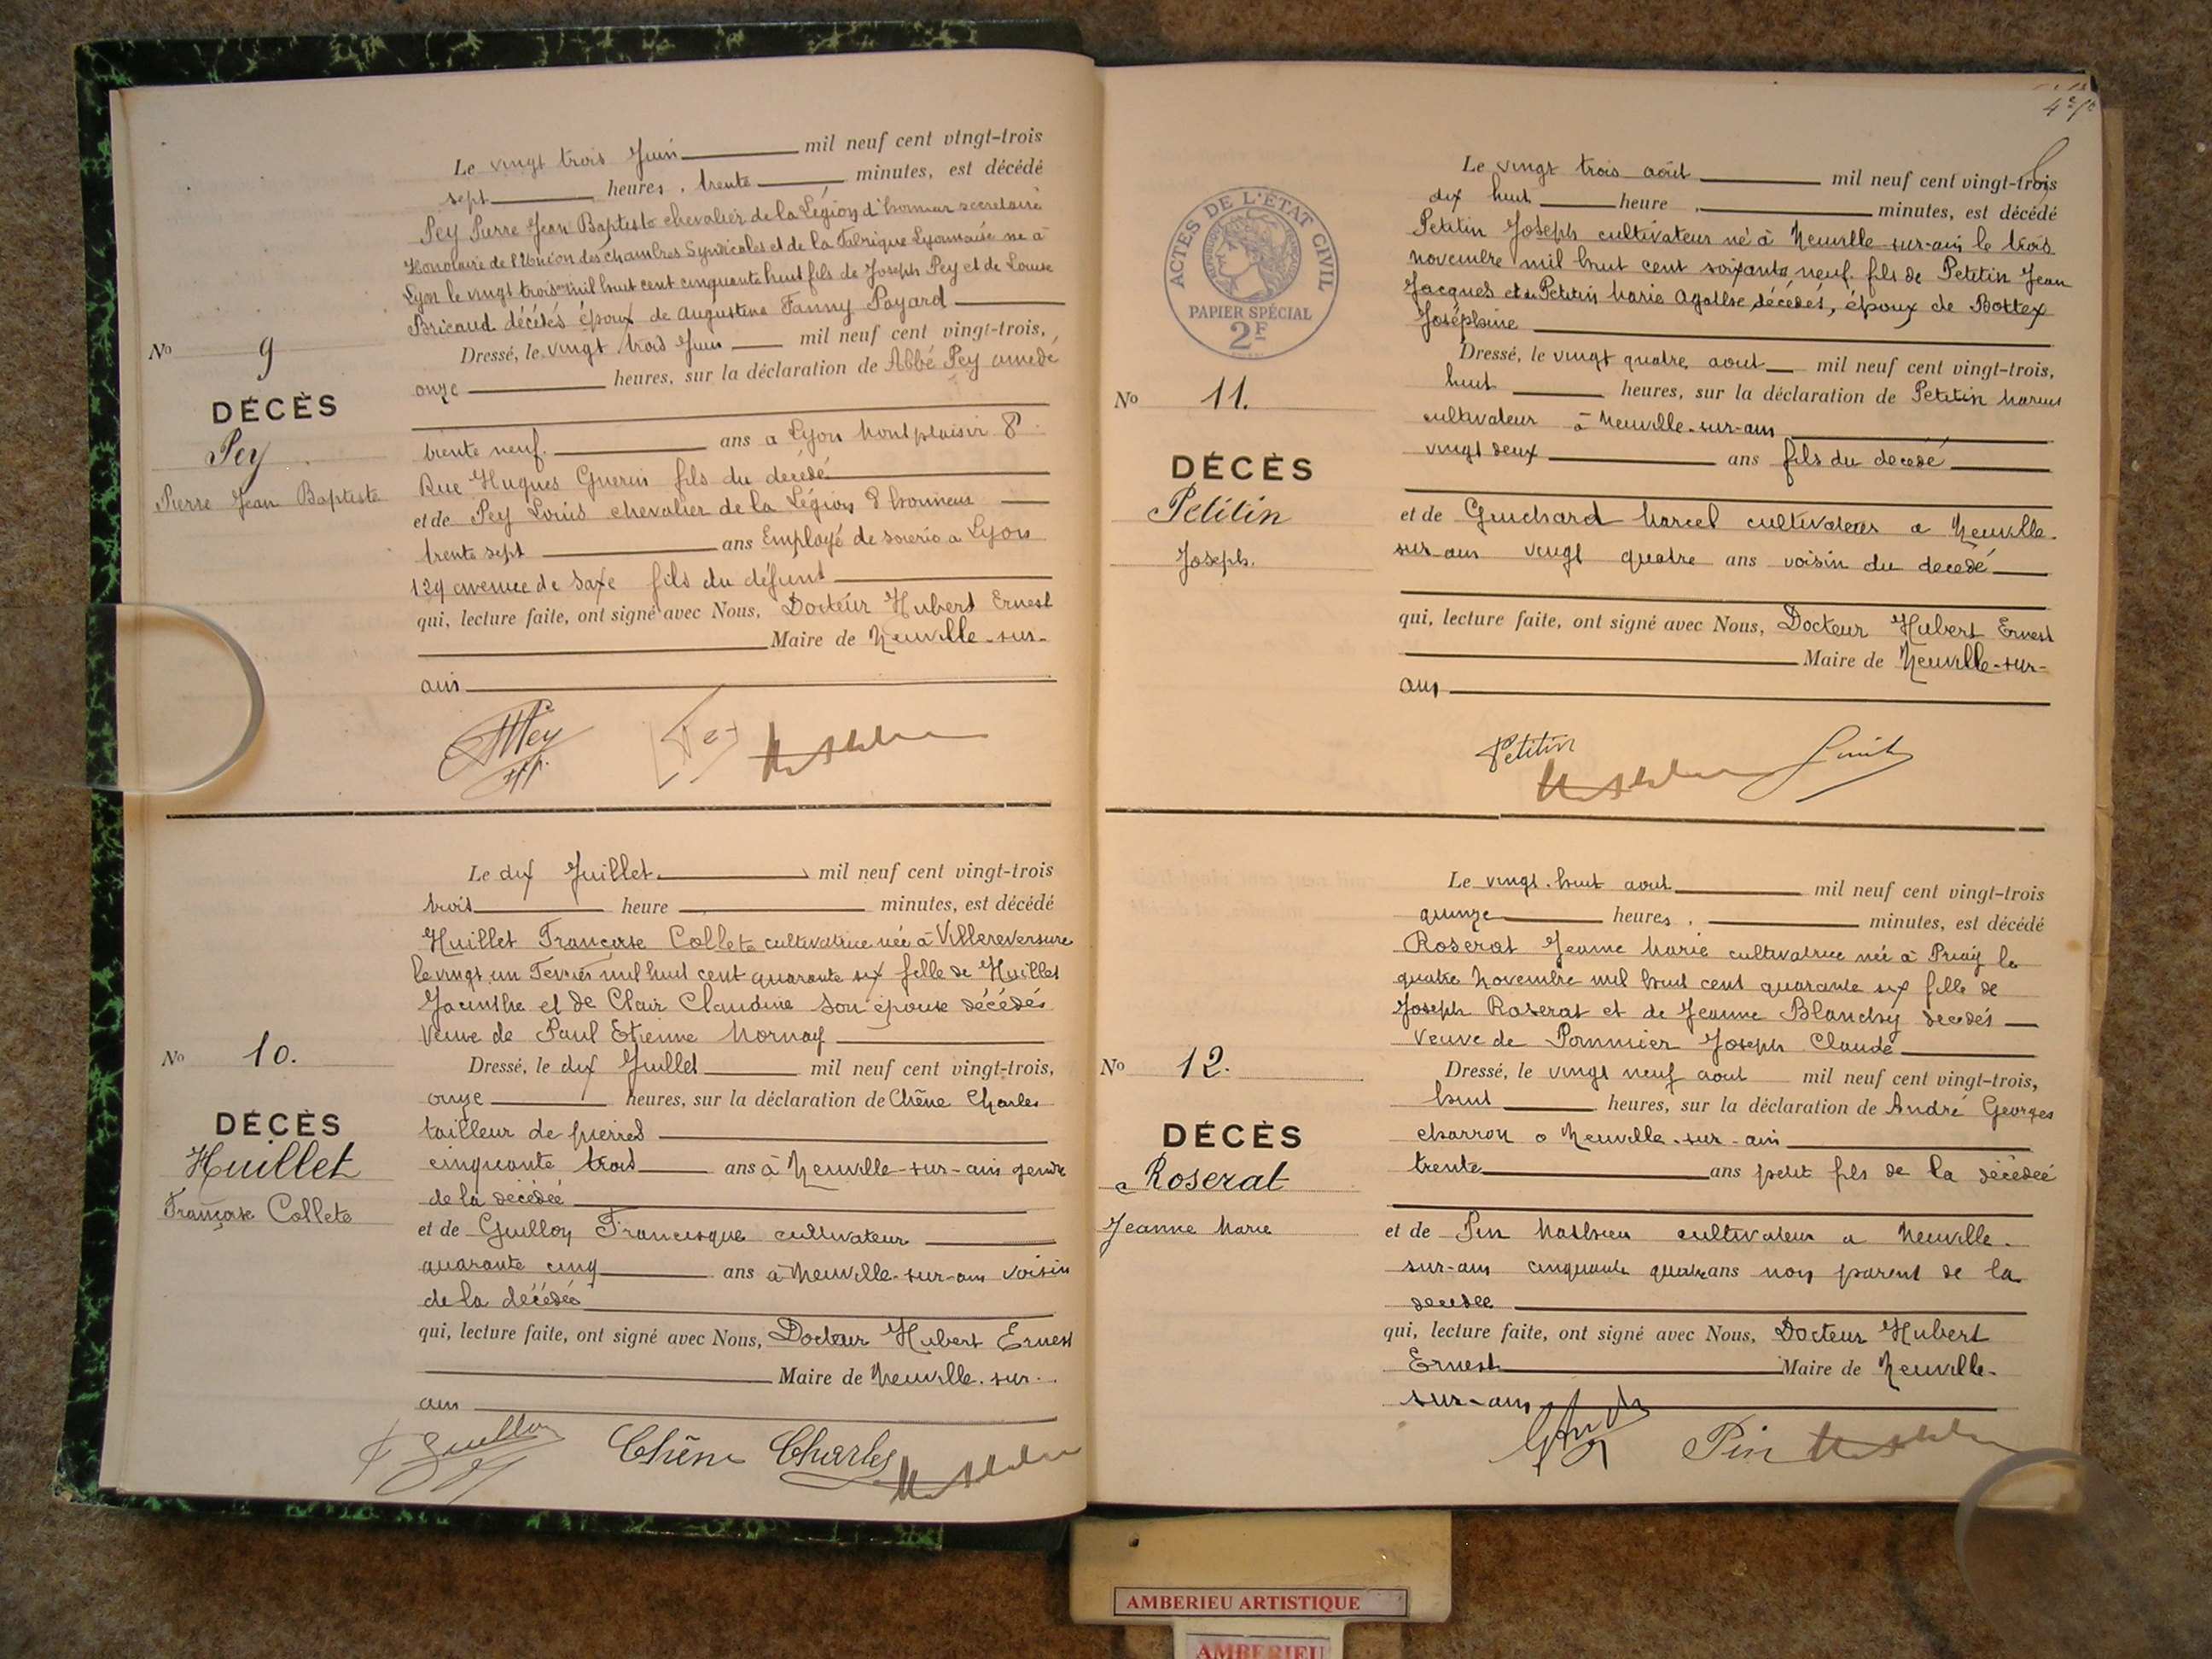 Le vingt trois Juin mil neuf cent vingt-trois
sept heures, trente minutes, est décédé
Pey Pierre Jean Baptiste chevalier de la Légion d'honneur secretaire
Honoraire de l'Union des chambres Syndicales et de la Fabrique Lyonnaise né à
Lyon le vingt trois mil huit cent cinquante huit fils de Joseph Pey et de Louise
Bricaud décédés époux de Augustine Fanny Payard
Dressé, le vingt trois Juin mil neuf cent vingt-trois,
onze heures, sur la déclaration de Abbé Pey amedé
trente neuf. ans a Lyon Montplaisir 8
Rue Hugues Guerin fils du décédé
et de Pey Louis chevalier de la Légion d'honneur
trente sept ans Employé de soierie a Lyon
129 avenue de Saxe fils du défunt
qui, lecture faite, ont signé avec Nous, Docteur Hubert Ernest
Maire de Neuville-sur-
ain
No 9
DÉCÈS
Pey
Pierre Jean Baptiste
Pey
Pey
Le dix Juillet mil neuf cent vingt-trois
trois heure minutes, est décédé
Huillet Françoise Collete cultivatrice née à Villereversure
le vingt un Fevrier mil huit cent quarante six fille de Huillet
Jacinthe et de Clair Claudine son épouse décédés
Veuve de Paul Etienne Mornay
Dressé, le dix Juillet mil neuf cent vingt-trois,
onze heures, sur la déclaration de Chêne Charles
tailleur de pierres
cinquante trois ans à Neuville-sur-ain gendre
de la décédée
et de Guillon Francisque cultivateur
quarante cinq ans à Neuville-sur-ain voisin
de la décédée
qui, lecture faite, ont signé avec Nous, Docteur Hubert Ernest
Maire de Neuville-sur-
ain
No 10.
DÉCÈS
Huillet
Françoise Collete
Guillon
Chêne Charles
Le vingt trois août mil neuf cent vingt-trois
dix huit heure, minutes, est décédé
Petitin Joseph cultivateur né à Neuville-sur-ain le trois
novembre mil huit cent soixante neuf fils de Petitin Jean
Jacques et de Petitin Marie Agathe décédés, époux de Bottex
Joséphine
Dressé, le vingt quatre aout mil neuf cent vingt-trois,
huit heures, sur la déclaration de Petitin Marius
cultivateur à Neuville-sur-ain
vingt deux ans fils du decedé
et de Guichard Marcel cultivateur a Neuville-
sur-ain vingt quatre ans voisin du decedé
qui, lecture faite, ont signé avec Nous, Docteur Hubert Ernest
Maire de Neuville-sur-
ain
ACTES DE L'ÉTAT CIVIL
PAPIER SPÉCIAL
2F
No 11.
DÉCÈS
Petitin
Joseph.
Petitin
Le vingt-huit aout mil neuf cent vingt-trois
quinze heures, minutes, est décédé
Roserat Jeanne Marie cultivatrice née à Priay le
quatre Novembre mil huit cent quarante six fille de
Joseph Roserat et de Jeanne Blanchy decedés
Veuve de Pommier Joseph Claude
Dressé, le vingt neuf aout mil neuf cent vingt-trois,
huit heures, sur la déclaration de André Georges
charron a Neuville-sur-ain
trente ans petit fils de la décédeé
et de Pin Mathieu cultivateur a Neuville-
sur-ain cinquante quatre ans non parent de la
decedee
qui, lecture faite, ont signé avec Nous, Docteur Hubert
Ernest Maire de Neuville-
sur-ain
No 12.
DÉCÈS
Roserat
Jeanne Marie
Pin
AMBERIEU ARTISTIQUE
AMBERIEU